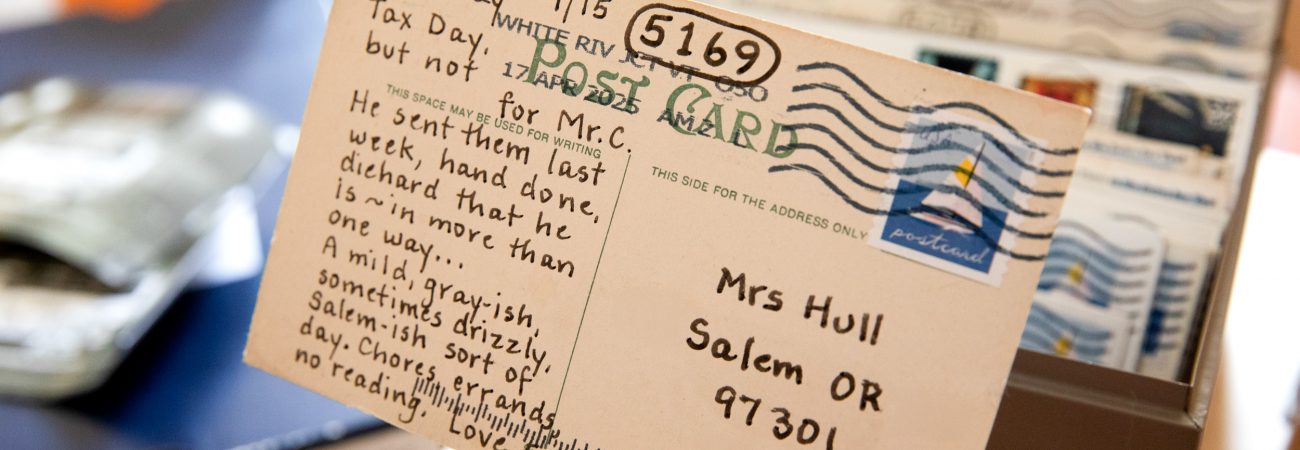 4/15
5169
Tax Day,
but not
for Mr. C.
He sent them last
week, hand done,
diehard that he
is ~ in more than
one way...
A mild, gray-ish,
sometimes drizzly,
Salem-ish sort of
day. Chores, errands
no reading.
Love
WHITE RIV JCT VT 050
17 APR 2025 AM 2 L
POST CARD
THIS SPACE MAY BE USED FOR WRITING
THIS SIDE FOR THE ADDRESS ONLY
postcard
Mrs Hull
Salem OR
97301